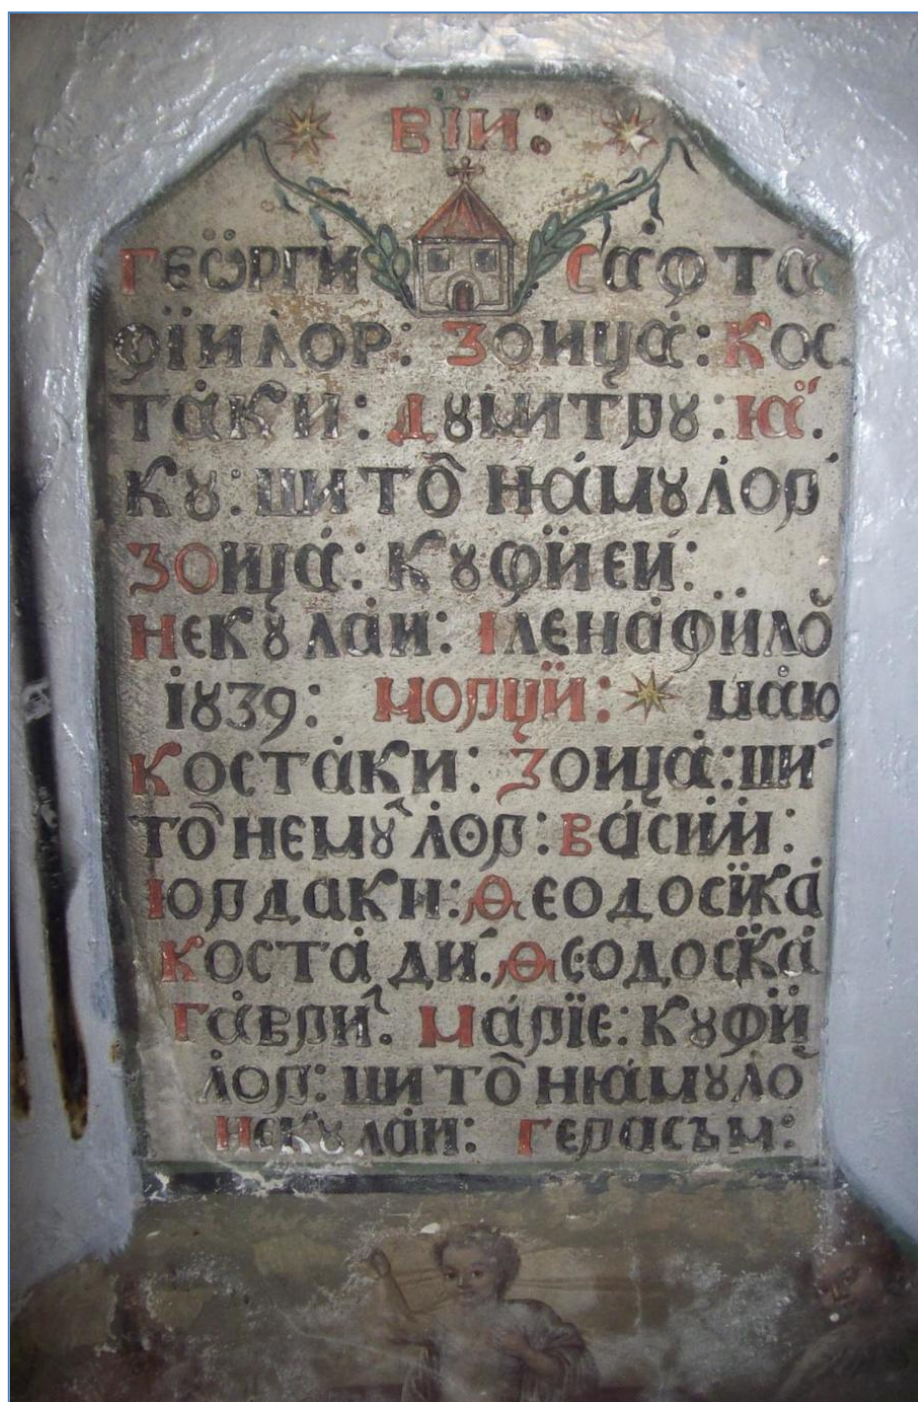 ВІИ:
ГЕѠРГИ САФТА
ФІИЛОР: ЗОИЦА: КОС
ТАКИ: ДꙋМИТРꙋ: ꙖА
Кꙋ: ШИ ТО НꙖМꙋЛОР
ЗОИЦА: КꙋФІИЕИ:
НЕКꙋЛАИ: ІЛЕНА ФИЛО
1839: МОРЦІИ: МАЮ
КОСТАКИ: ЗОИЦА: ШИ
ТО НЕМꙋЛОР: ВАСИИ:
ІОРДАКИ: ѲЕОДОСІКА
КОСТАДИ: ѲЕОДОСІКА
ГАВРИ: МАРІЕ: КꙋФІИ
ЛОР: ШИ ТО НꙖМꙋЛО
НЕКꙋЛАИ: ГЕРАСЪМ: